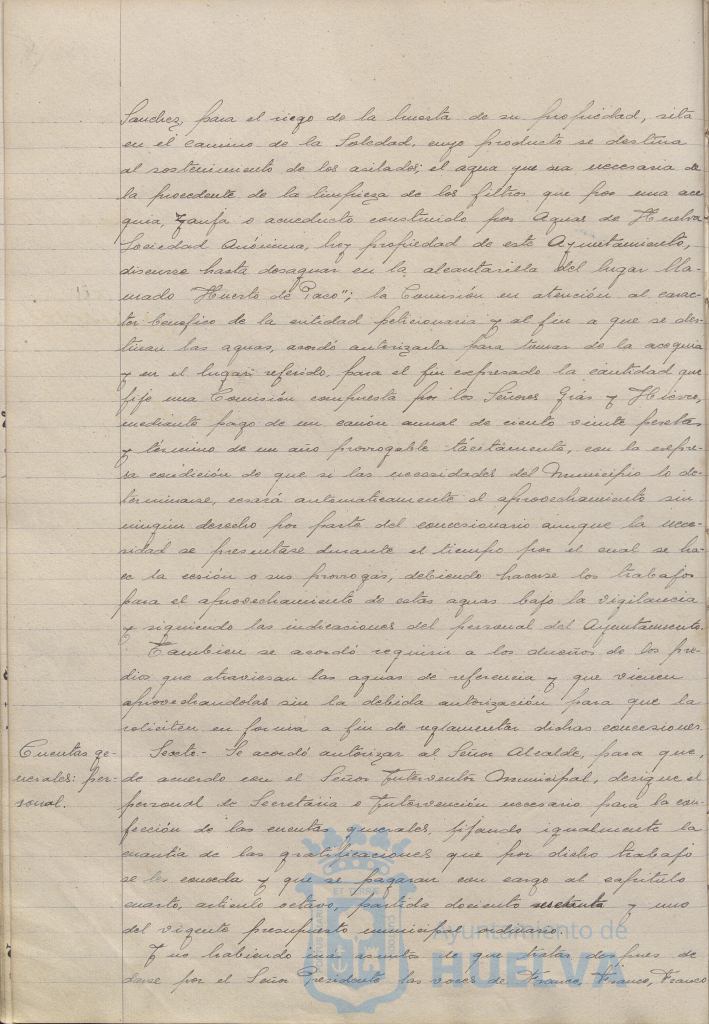 Sanchez, para el riego de la huerta de su propiedad, sita
en el camino de la Soledad, cuyo producto se destina
al sostenimiento de los asilados; el agua que sea necesaria de
la procedente de la limpieza de los filtros que por una ace-
quia, zanfa o acueducto construido por Aguas de Huelva
Sociedad Anónima, hoy propiedad de este Ayuntamiento,
discurre hasta desaguar en la alcantarilla del lugar lla-
mado "Huerto de Paco"; la Comisión en atención al carac-
ter benefico de la entidad peticionaria y al fin a que se des-
tinan las aguas, acordó autorizarla para tomar de la acequia
y en el lugar referido, para el fin expresado la cantidad que
fije una Comisión compuesta por los Señores Gras y Hierro,
mediante pago de un canón anual de ciento veinte pesetas
y término de un año prorrogable tácitamente, con la expre-
sa condición de que si las necesidades del Municipio lo de-
terminase, cesará automaticamente el aprovechamiento sin
ningun derecho por parte del concesionario aunque la nece-
sidad se presentase durante el tiempo por el cual se ha-
ce la cesión o sus prorrogas, debiendo hacerse los trabajos
para el aprovechamiento de estas aguas bajo la vigilancia
y siguiendo las indicaciones del personal del Ayuntamiento.
Tambien se acordó requirir a los dueños de los pre-
dios que atraviesan las aguas de referencia y que vienen
aprovechandolas sin la debida autorización para que la
soliciten en forma a fin de reglamentar dichas concesiones
Cuentas ge-
nerales: per-
sonal.
Sexto.- Se acordó autorizar al Señor Alcalde, para que,
de acuerdo con el Señor Interventor Municipal, designe el
personal de Secretaria e Intervención necesario para la con-
fección de las cuentas generales, fifando igualmente la
cuantia de las gratificaciones que por dicho trabajo
se les conceda y que se pagaran con cargo al capitulo
cuarto, articulo octavo, partida dociento y uno
del vigente presupuesto municipal ordinario.
Y no habiendo más asuntos de que tratar despues de
darse por el Señor Presidente las voces de Franco, Franco, Franco
Ayuntamiento de
HUELVA